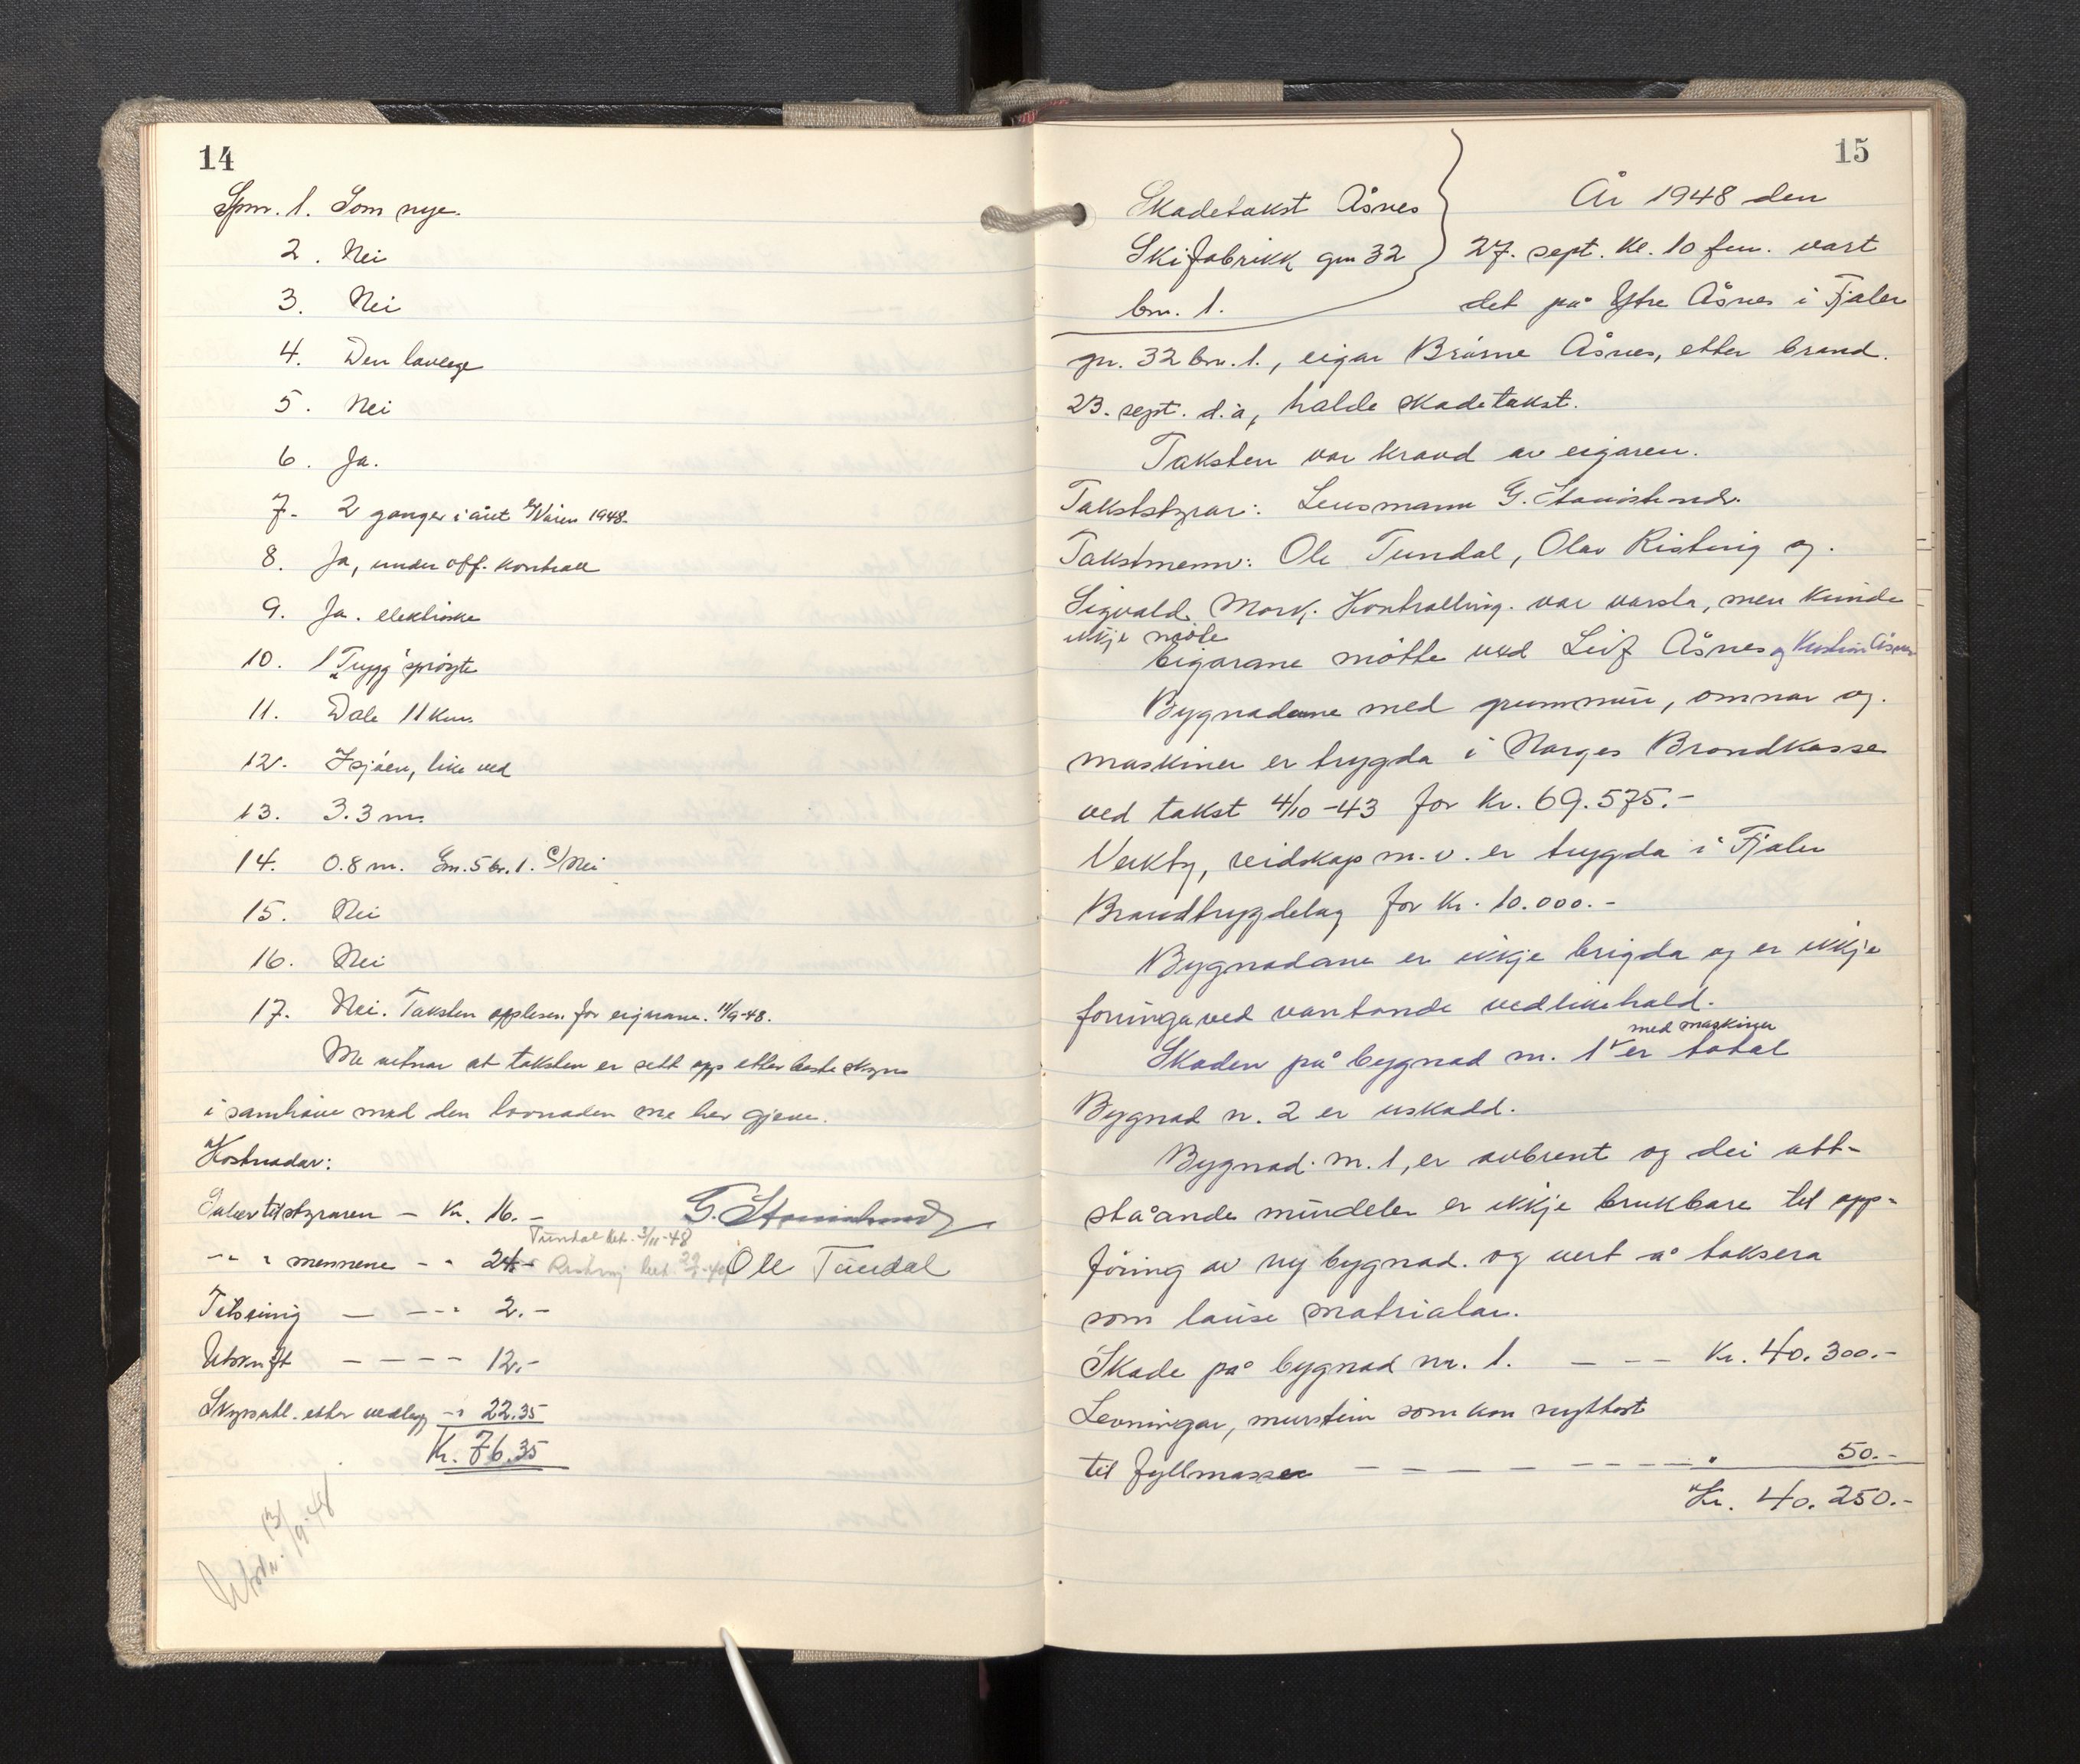 14
Spm. 1. Som nye.
2. Nei
3. Nei
4. Den lavlege
5. Nei
6. Ja.
7. 2 gonger i året Våren 1948.
8. Ja, under off. kontroll
9. Ja. elektriske
10. 1 "Trygg" sprøyte
11. Dale 11 km.
12. I sjøen, like ved
13. 3.3 m.
14. 0.8 m. Gn. 5 br. 1. c/ Nei
15. Nei
16. Nei
17. Nei. Taksten opplesen for eigarane. 11/9-48.
Me vitnar at taksten er sett opp etter beste skyn
i samhøve med den lovnaden me har gjeve.
Kostnadar:
til styraren – Kr. 16.–
Tundal bet. 3/11-48
G. Stamislund
mennene – " 24.–
Ristning bet.
Ole Tundal
Tilseiing — — 2.–
Utskrift – – – – 12.–
Skyssutl. etter vedlegg – " 22.35
Kr. 76.35
Utskr. 13/9-48
15
Skadetakst Åsnes
Skifabrikk gnr 32
bnr. 1.
År 1948 den
27. sept. kl. 10 fm. vart
det på Ytre Åsnes i Fjaler
gnr. 32 bnr. 1., eigar Brørne Åsnes, etter brand.
23. sept. d.å, halde skadetakst.
Taksten var kravd av eigaren.
Takststyrar: Lensmann G.
Takstmenn: Ole Tundal, Olav Ristning og.
Sigvald Mork. var varsla, men kunde
ikkje møte
Eigarane møtte ved Leif Åsnes og Kristian Åsnes
Bygnadane med grunnmur, omnar og.
maskiner er trygda i Norges Brandkasse
ved takst 4/10-43 for kr. 69.575.–
Verkty, reidskap m.v. er trygda i Fjaler
Brandtrygdelag for kr. 10.000.–
Bygnadane er ikkje brigda og er ikkje
foringa ved vantande vedlikehald.
med maskiner
Skaden på bygnad nr. 1 er total
Bygnad nr. 2 er uskadd.
Bygnad nr. 1, er avbrent og dei att-
ståande murdeler er ikkje brukbare til opp-
føring av ny bygnad. og vert å taksera
som lause matrialar.
Skade på bygnad nr. 1. — — — Kr. 40.300.–
Levningar, murstein som kan nyttast
til fyllmasser — — — — — — — — " 50.–
Kr. 40.250.–